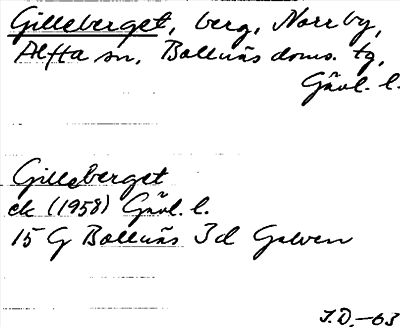 Gilleberget, berg, Norrby,
Alfta sn, Bollnäs doms. tg,
Gävl. l.
Gilleberget
ek (1958) Gävl. l.
15 G Bollnäs 3d Galven
J.D. -63